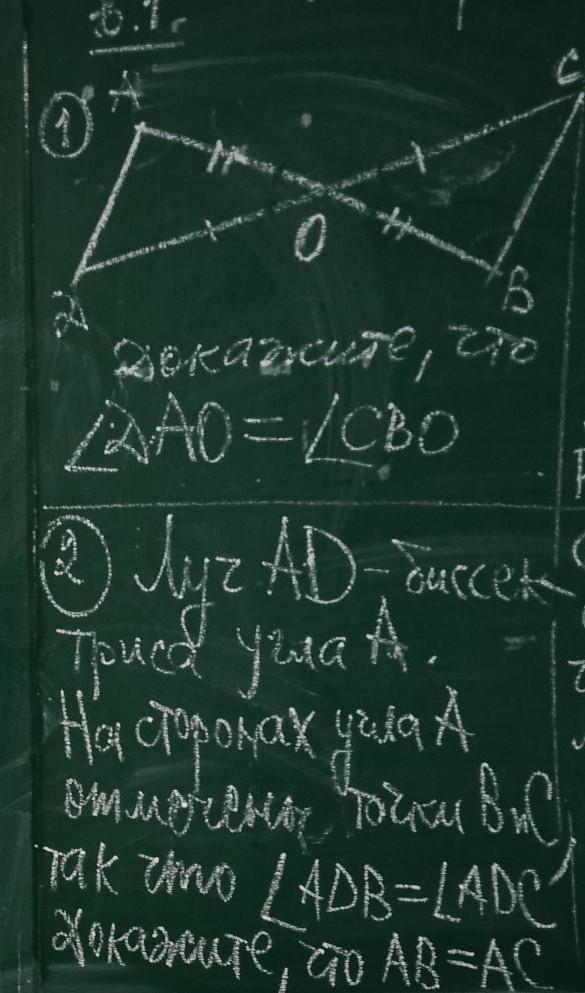 В.1.
1
A
C
O
B
Д
Докажите, что
∠ДAO=∠CBO
2 Луч AD-биссек
триса угла A.
На сторонах угла A
отмечены точки B и C,
так что ∠ADB=∠ADC
Докажите, что AB=AC